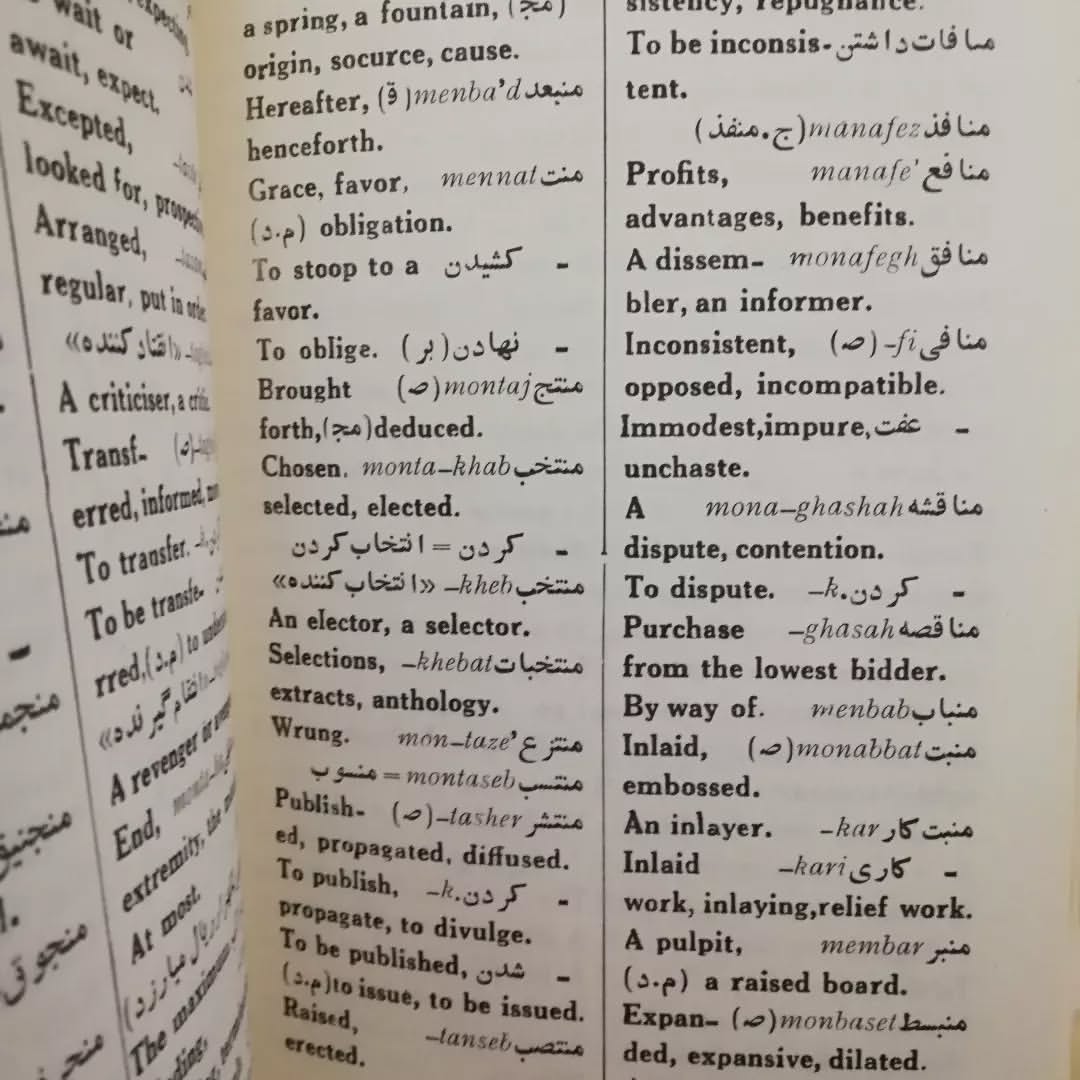 To be inconsis- منافات داشتن
tent.
منافذ manafez (ج.منفذ)
Profits, manafe' منافع
advantages, benefits.
A dissem- monafegh منافق
bler, an informer.
Inconsistent, (ص) -fi منافی
opposed, incompatible.
Immodest,impure, عفت -
unchaste.
A mona-ghashah مناقشه
dispute, contention.
To dispute. -k. کردن -
Purchase -ghasah مناقصه
from the lowest bidder.
By way of. menbab منباب
Inlaid, (ص) monabbat منبت
embossed.
An inlayer. -kar منبت کار
Inlaid -kari کاری -
work, inlaying,relief work.
A pulpit, membar منبر
(م.د) a raised board.
Expan- (ص) monbaset منبسط
ded, expansive, dilated.
a spring, a fountain, (مج)
origin, socurce, cause.
Hereafter, (ق) menba'd منبعد
henceforth.
Grace, favor, mennat منت
(م.د) obligation.
To stoop to a کشیدن -
favor.
To oblige. نهادن (بر) -
Brought (ص) montaj منتج
forth,(مج) deduced.
Chosen. monta-khab منتخب
selected, elected.
- کردن = انتخاب کردن
منتخب kheb- «انتخاب کننده»
An elector, a selector.
Selections, -khebat منتخبات
extracts, anthology.
Wrung. mon-taze' منتزع
منتسب montaseb = منسوب
Publish- (ص) -tasher منتشر
ed, propagated, diffused.
To publish, -k. کردن -
propagate, to divulge.
To be published, شدن -
(م.د) to issue, to be issued.
Raised, -tanseb منتصب
erected.
wait or
await, expect.
Excepted,
looked for,
Arranged,
regular, put in
A criticiser, a
Transf-
erred, informed,
To transfer. -k.
To be transfe-
rred,(م.د) to
A revenger or
End,
extremity, the
At most.
The maximum